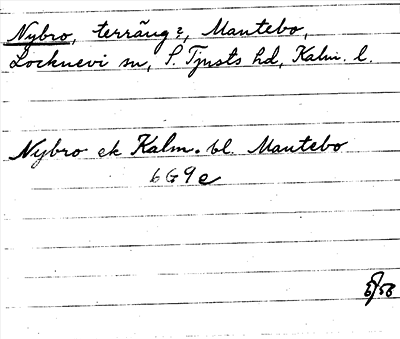 Nybro, terräng?, Mantebo,
Locknevi sn, S. Tjusts hd, Kalm. l.
Nybro ek Kalm. bl. Mantebo
6G9e